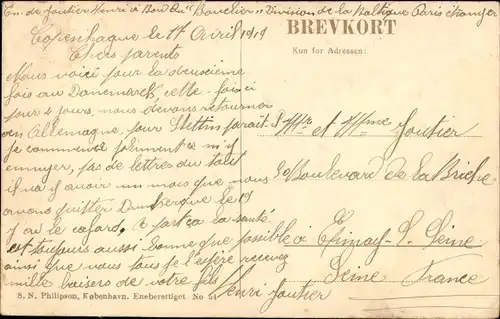 En. de Joutier Henri à Bord du "Bouclier" Division de la Baltique Paris étranger
BREVKORT
Kun for Adressen:
Copenhague le 17 Avril 1919
Chers parents
Nous voici pour la deuxième
fois au Danemarck, cette fois-ci
pour 4 jours, nous devons retourner
en Allemagne, pour Stettin parait-il
je commence joliment à m'y
ennuyer, pas de lettres du tout
il va y avoir un mois que nous
avons quitter Dunkerque le 19
j'y ai le cafard, à part ça la santé
est toujours aussi bonne que possible
ainsi que vous tous je l'espère recevez
mille baisers de votre fils
Henri Joutier
Mr et Mme Joutier
Boulevard de la Briche
à Epinay-S-Seine
Seine France
S. N. Philipson, København. Eneberettiget No 54